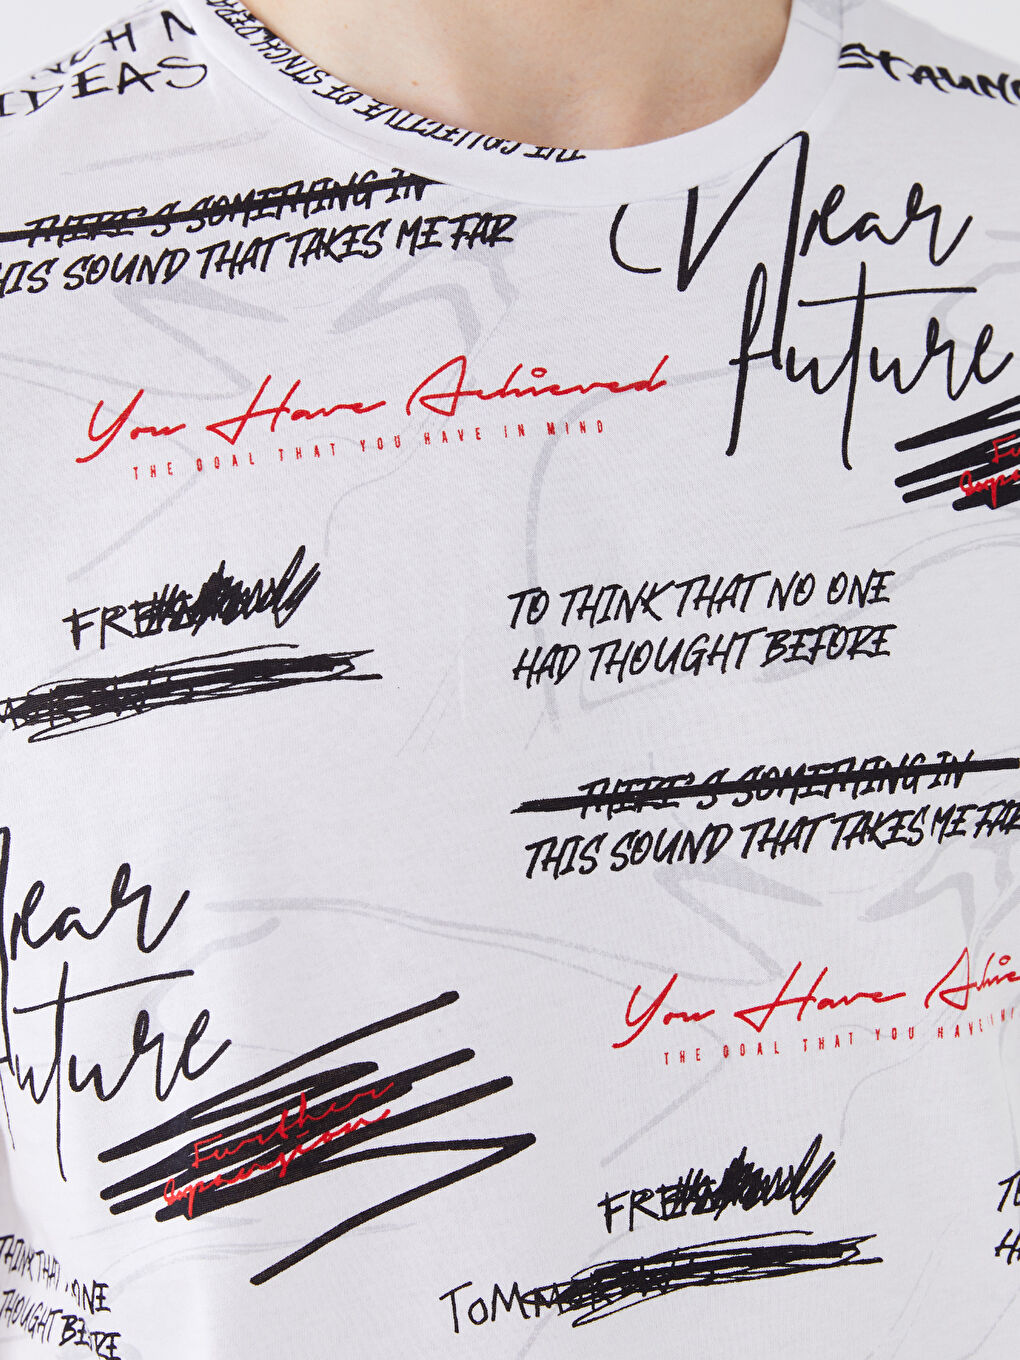 IDEAS
THE COLLECTIVE OF STNCH
THERE'S SOMETHING IN
THIS SOUND THAT TAKES ME FAR
Near
future
You Have Achieved
THE GOAL THAT YOU HAVE IN MIND
FRE
TO THINK THAT NO ONE
HAD THOUGHT BEFORE
THERE'S SOMETHING IN
THIS SOUND THAT TAKES ME FAR
Near
future
You Have Achie
THE GOAL THAT YOU HAVE IN
Further
FRE
TOMM
TO
HA
THINK THAT ONE
THOUGHT BEFORE